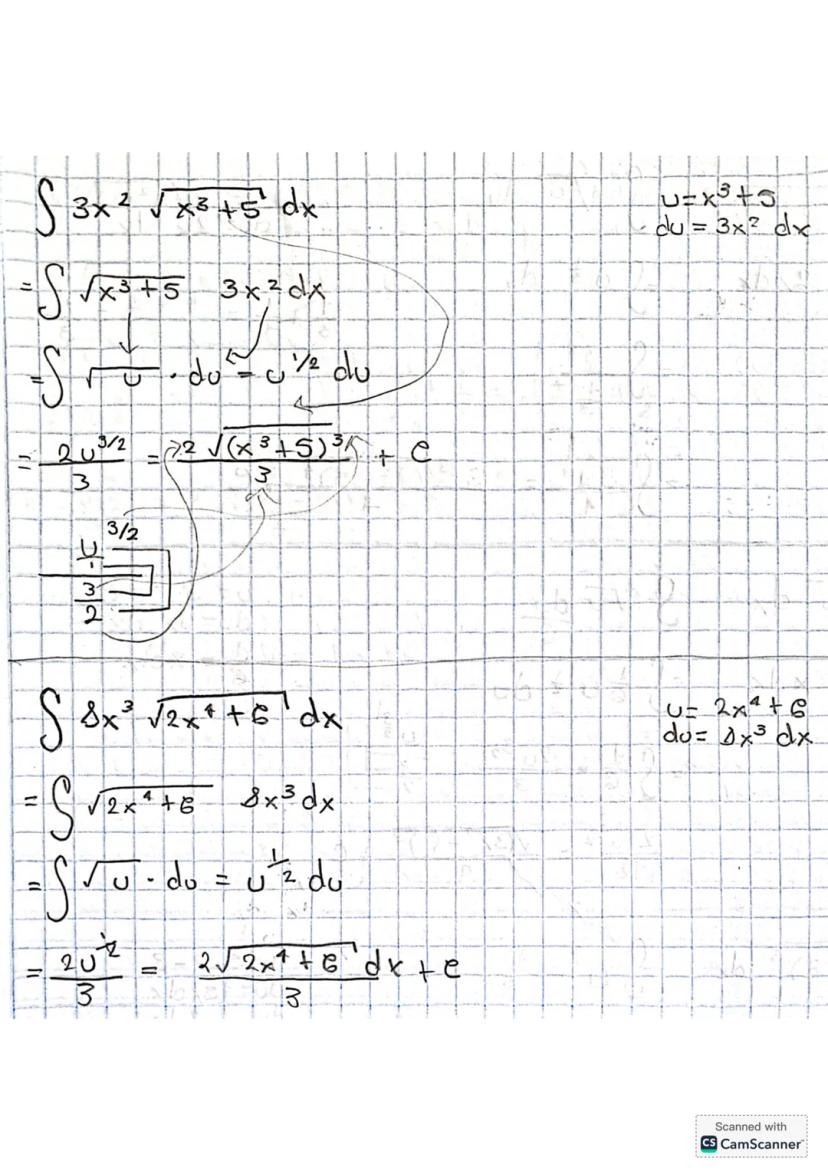 ∫ 3x² √(x³+5) dx    u=x³+5
du = 3x² dx
= ∫ √(x³+5) 3x² dx
= ∫ √u · du = u^1/2 du
= 2u^3/2 / 3 = 2√((x³+5)³) / 3 + c
u^3/2
1
3
2
∫ 8x³ √(2x⁴+6) dx    u= 2x⁴+6
du= 8x³ dx
= ∫ √(2x⁴+6) 8x³ dx
= ∫ √u · du = u^1/2 du
= 2u^1/2 / 3 = 2√(2x⁴+6) dx / 3 + c
Scanned with
CS CamScanner